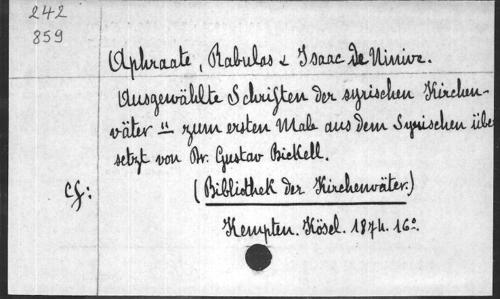 242
859
Aphraate, Rabulas & Isaac de Ninive.
Ausgewählte Schriften der syrischen Kirchen-
väter " zum ersten Male aus dem Syrischen übe
setzt von Dr. Gustav Bickell.
cf: (Bibliothek der Kirchenväter.)
Kempten. Kösel. 1874. 16°.